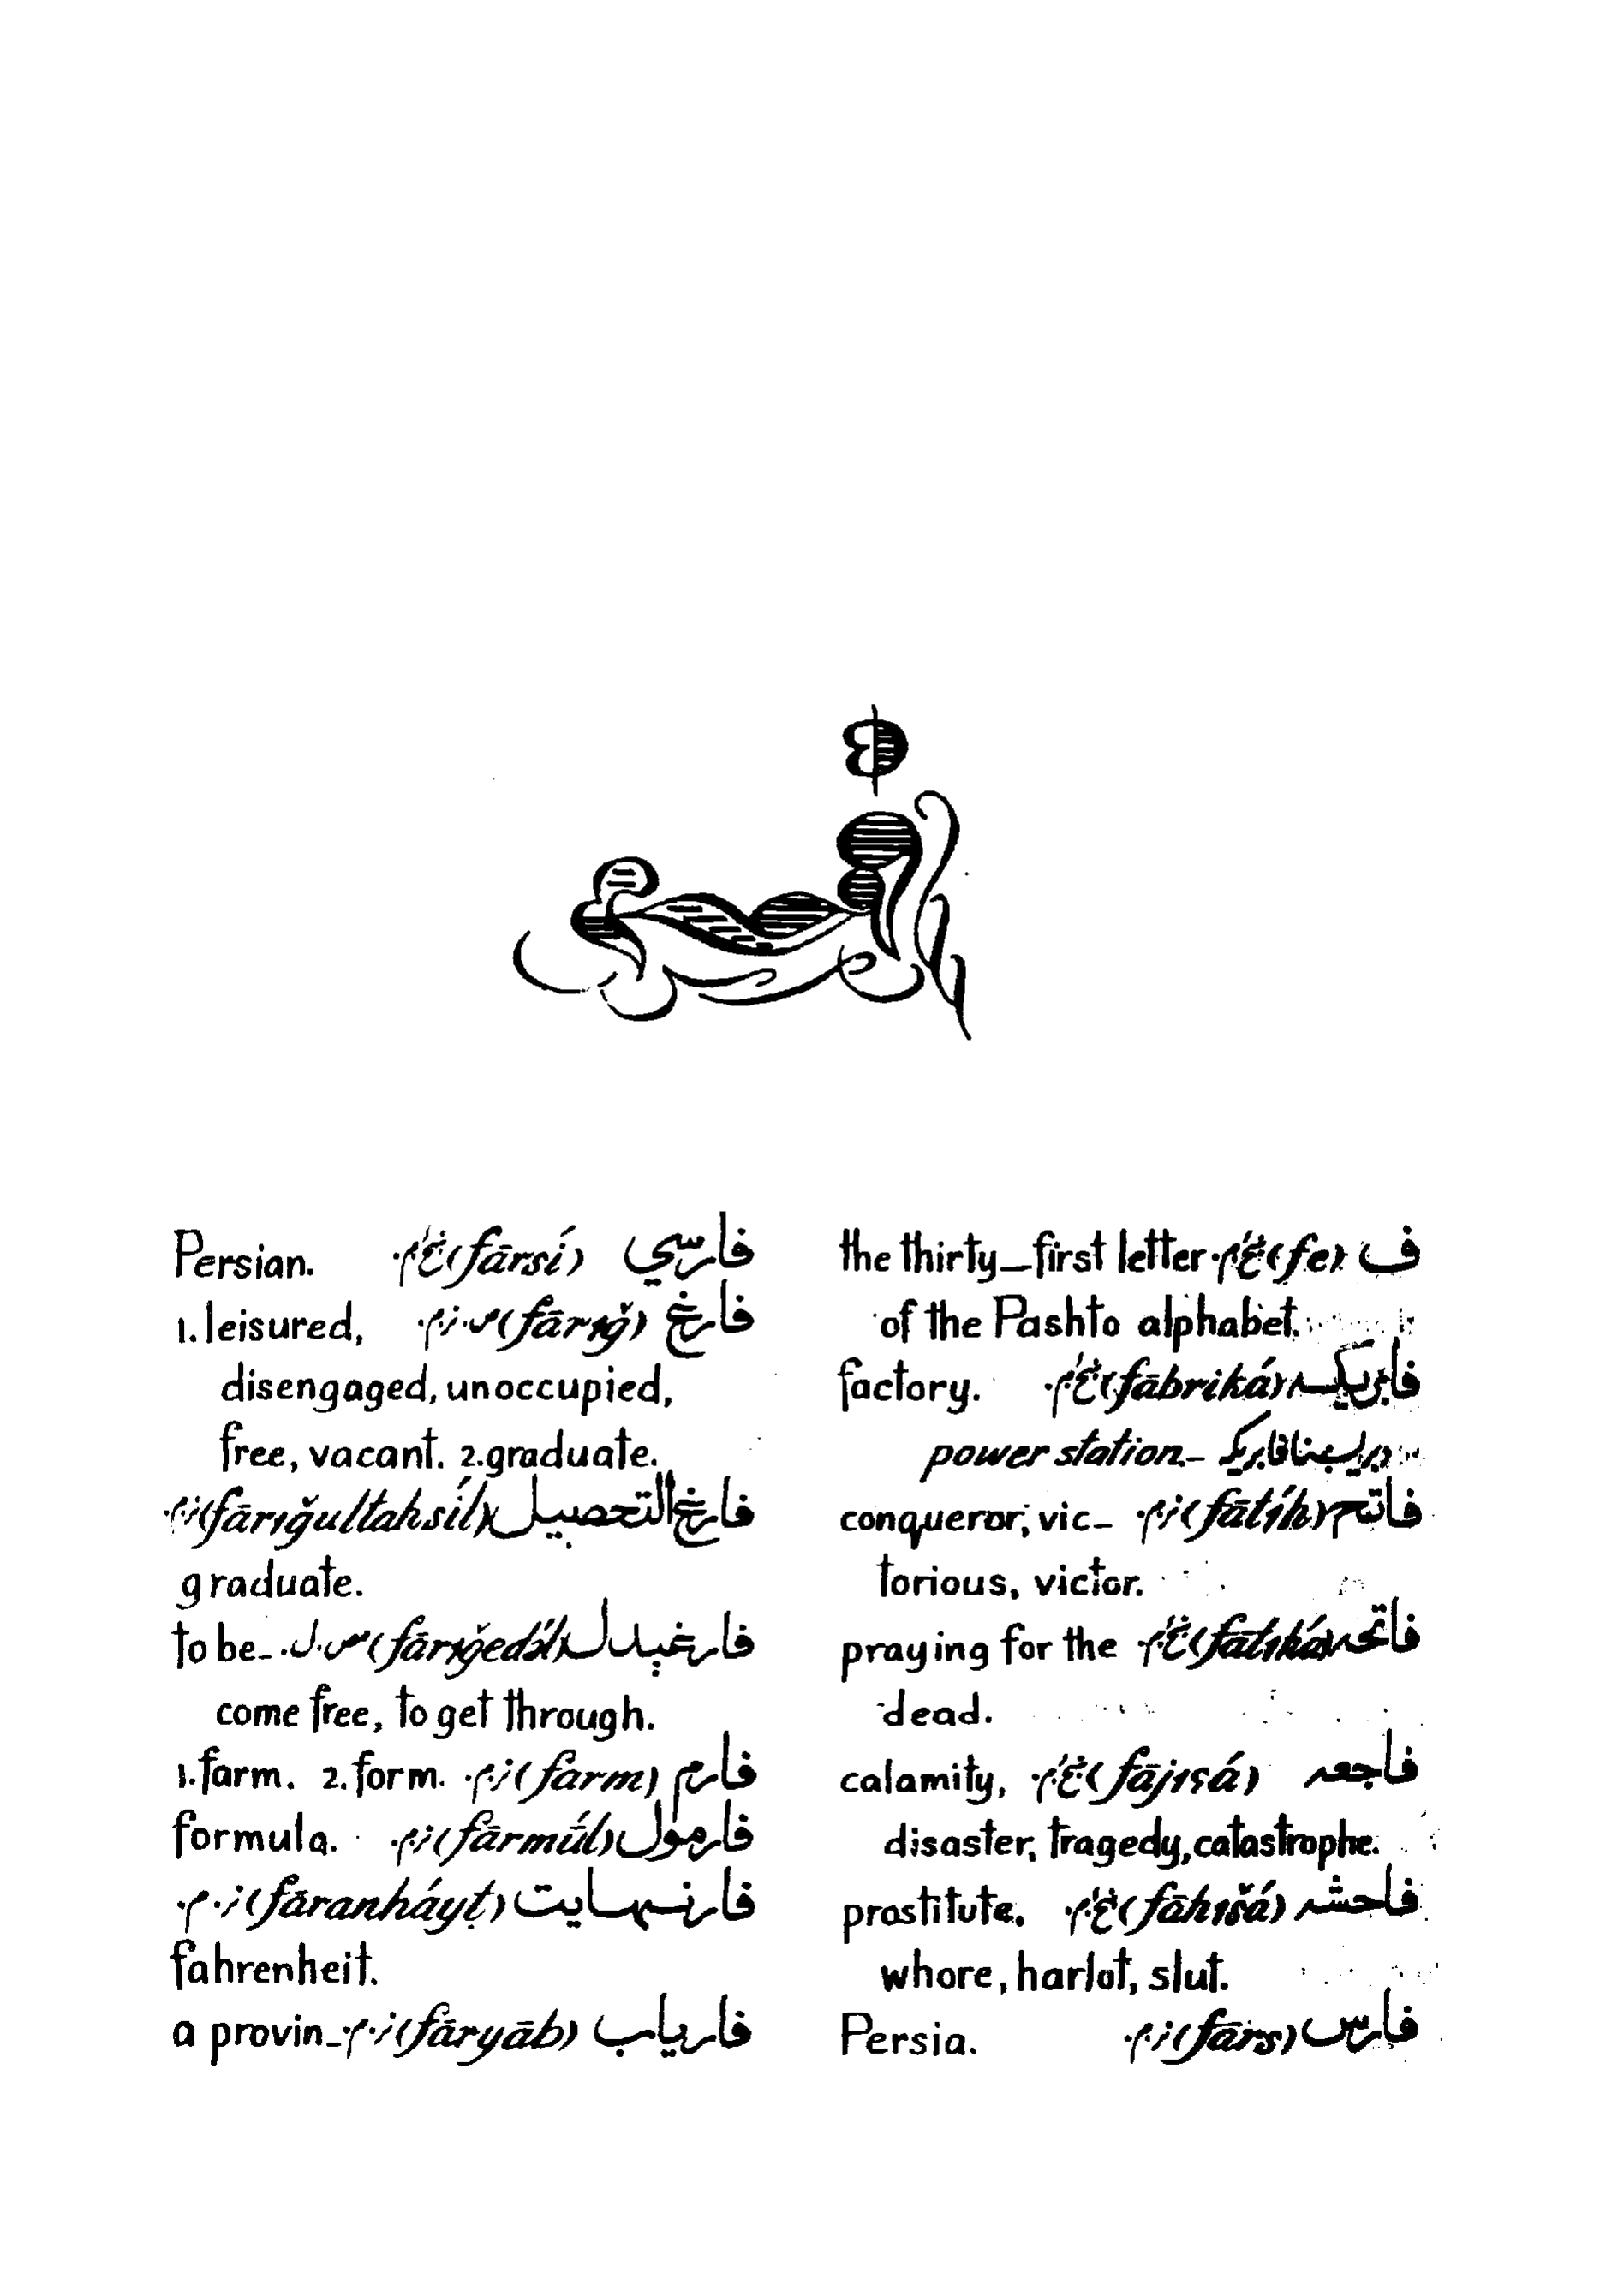 ف (fe) the thirty_first letter
of the Pashto alphabet.
فابریکه (fābriká) factory.
power station._
فاتح (fātíh) conqueror, vic_
torious, victor.
فاتحه (fātıhá) praying for the
dead.
فاجعه (fājıʕá) calamity,
disaster, tragedy, catastrophe.
فاحشه (fāhıšá) prostitute,
whore, harlot, slut.
فارس (fārs) Persia.
فارسي (fārsí) Persian.
فارغ (fārıǧ) 1. leisured,
disengaged, unoccupied,
free, vacant. 2. graduate.
فارغ التحصیل (fārıǧultahsíl)
graduate.
فارغېدل (fārıǧedə́l) to be_
come free, to get through.
فارم (fārm) 1. farm. 2. form.
فارمول (fārmúl) formula.
فارنهایت (fāranháyṭ)
fahrenheit.
فاریاب (fāryāb) a provin_